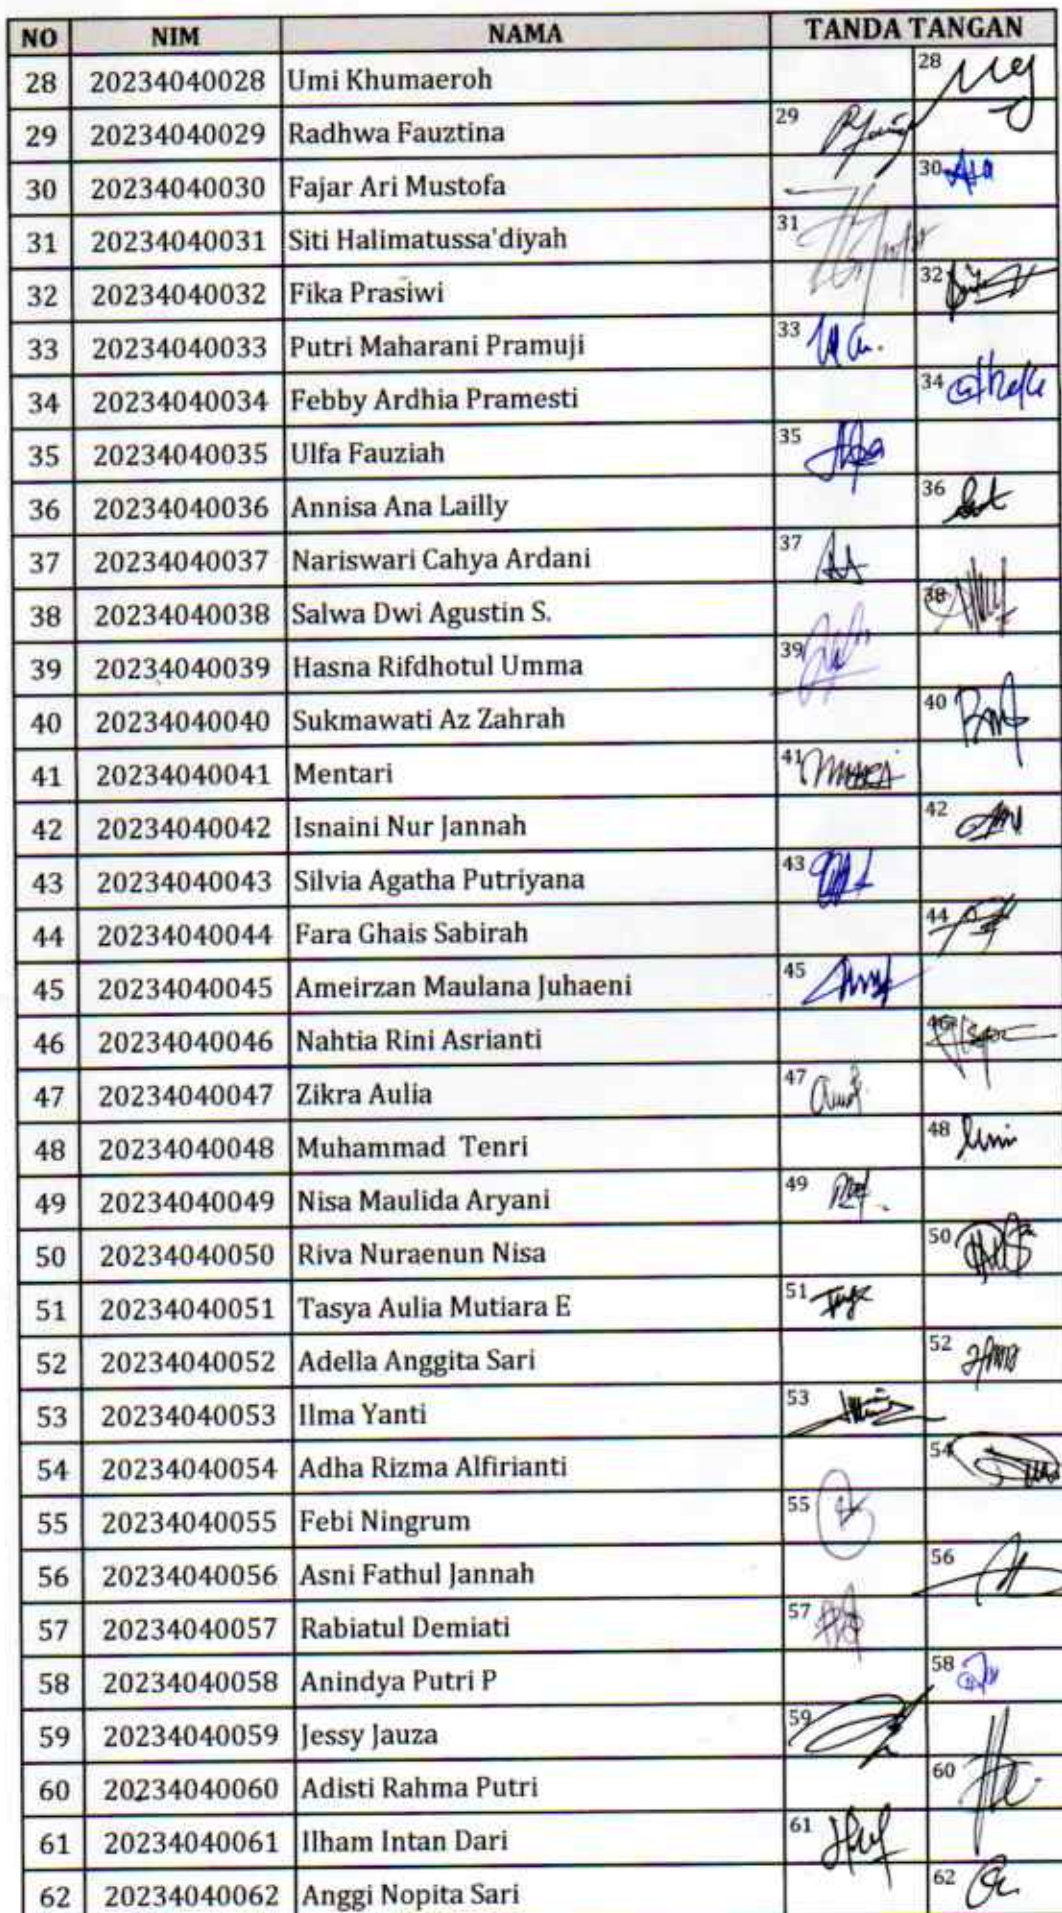 NO NIM NAMA TANDA TANGAN
28 20234040028 Umi Khumaeroh 28
29 20234040029 Radhwa Fauztina 29
30 20234040030 Fajar Ari Mustofa 30
31 20234040031 Siti Halimatussa'diyah 31
32 20234040032 Fika Prasiwi 32
33 20234040033 Putri Maharani Pramuji 33
34 20234040034 Febby Ardhia Pramesti 34
35 20234040035 Ulfa Fauziah 35
36 20234040036 Annisa Ana Lailly 36
37 20234040037 Nariswari Cahya Ardani 37
38 20234040038 Salwa Dwi Agustin S. 38
39 20234040039 Hasna Rifdhotul Umma 39
40 20234040040 Sukmawati Az Zahrah 40
41 20234040041 Mentari 41
42 20234040042 Isnaini Nur Jannah 42
43 20234040043 Silvia Agatha Putriyana 43
44 20234040044 Fara Ghais Sabirah 44
45 20234040045 Ameirzan Maulana Juhaeni 45
46 20234040046 Nahtia Rini Asrianti 46
47 20234040047 Zikra Aulia 47
48 20234040048 Muhammad Tenri 48
49 20234040049 Nisa Maulida Aryani 49
50 20234040050 Riva Nuraenun Nisa 50
51 20234040051 Tasya Aulia Mutiara E 51
52 20234040052 Adella Anggita Sari 52
53 20234040053 Ilma Yanti 53
54 20234040054 Adha Rizma Alfirianti 54
55 20234040055 Febi Ningrum 55
56 20234040056 Asni Fathul Jannah 56
57 20234040057 Rabiatul Demiati 57
58 20234040058 Anindya Putri P 58
59 20234040059 Jessy Jauza 59
60 20234040060 Adisti Rahma Putri 60
61 20234040061 Ilham Intan Dari 61
62 20234040062 Anggi Nopita Sari 62